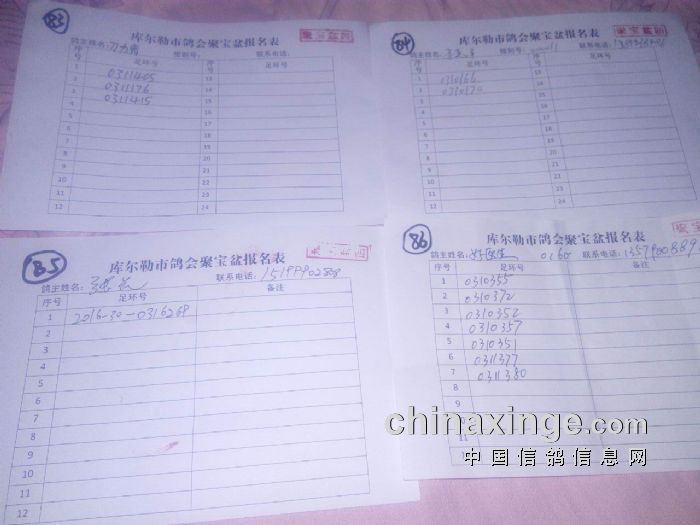 83
库尔勒市鸽会聚宝盆报名表
聚宝盆
鸽主姓名: 棚别号: 联系电话:
序号 足环号 序号 足环号
1 0311405 13
2 0311176 14
3 0311415 15
4 16
5 17
6 18
7 19
8 20
9 21
10 22
11 23
12 24
84
库尔勒市鸽会聚宝盆报名表
聚宝盆
鸽主姓名: 棚别号: 联系电话:
序号 足环号 序号 足环号
1 0310166 13
2 14
3 15
4 16
5 17
6 18
7 19
8 20
9 21
10 22
11 23
12 24
85
库尔勒市鸽会聚宝盆报名表
鸽主姓名: 联系电话:
序号 足环号 备注
1 2016-30-0316268
2
3
4
5
6
7
8
9
10
11
12
86
库尔勒市鸽会聚宝盆报名表
聚宝
鸽主姓名: 联系电话: 1357900889
序号 足环号 备注
1 0310355
2 0310372
3 0310352
4 0310357
5 0310351
6 0311377
7 0311380
8
9
chinaxinge.com
中国信鸽信息网